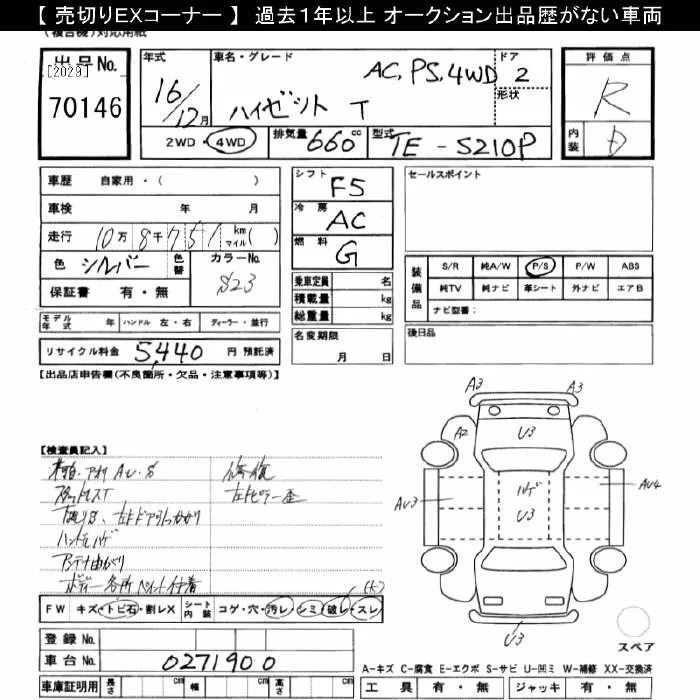 【 売切りEXコーナー 】 過去1年以上 オークション出品歴がない車両
(複合機)対応用紙
出品No.
[2029]
70146
年式
16/12月
車名・グレード
AC, PS, 4WD
ハイゼット T
ドア
2
形状
評価点
R
内装
D
2WD・4WD
排気量 660 cc
型式 TE-S210P
車歴 自家用・( )
車検 年 月
走行 10万8千751 km マイル( )
色 シルバー 色替 カラーNo. S23
保証書 有・無
モデル年式 年 ハンドル 左・右 ディーラー・並行
リサイクル料金 5,440 円 預託済
シフト F5
冷房 AC
燃料 G
乗車定員 名
積載量 kg
総重量 kg
名変期限
月 日
セールスポイント
装備品
S/R 純A/W P/S P/W ABS
純TV 純ナビ 革シート 外ナビ エアB
ナビ型番:
後日品
【出品店申告欄(不良箇所・欠品・注意事項等)】
【検査員記入】
修復
左ドア引っかかり
ハンドルハゲ
アンテナ曲がり
ボディー各所ペイント付着
(大)
FW キズ・トビ石・割レX シート内装 コゲ・穴・汚レ・シミ・破レ・スレ
登録No.
車台No. 0271900
車庫証明用 長さ cm 幅 cm 高さ cm
A3 A3
A2 U3
AU3 ハゲ U3 AU4
U3
スペア
A-キズ C-腐食 E-エクボ S-サビ U-凹ミ W-補修 XX-交換済
工具 有・無 ジャッキ 有・無